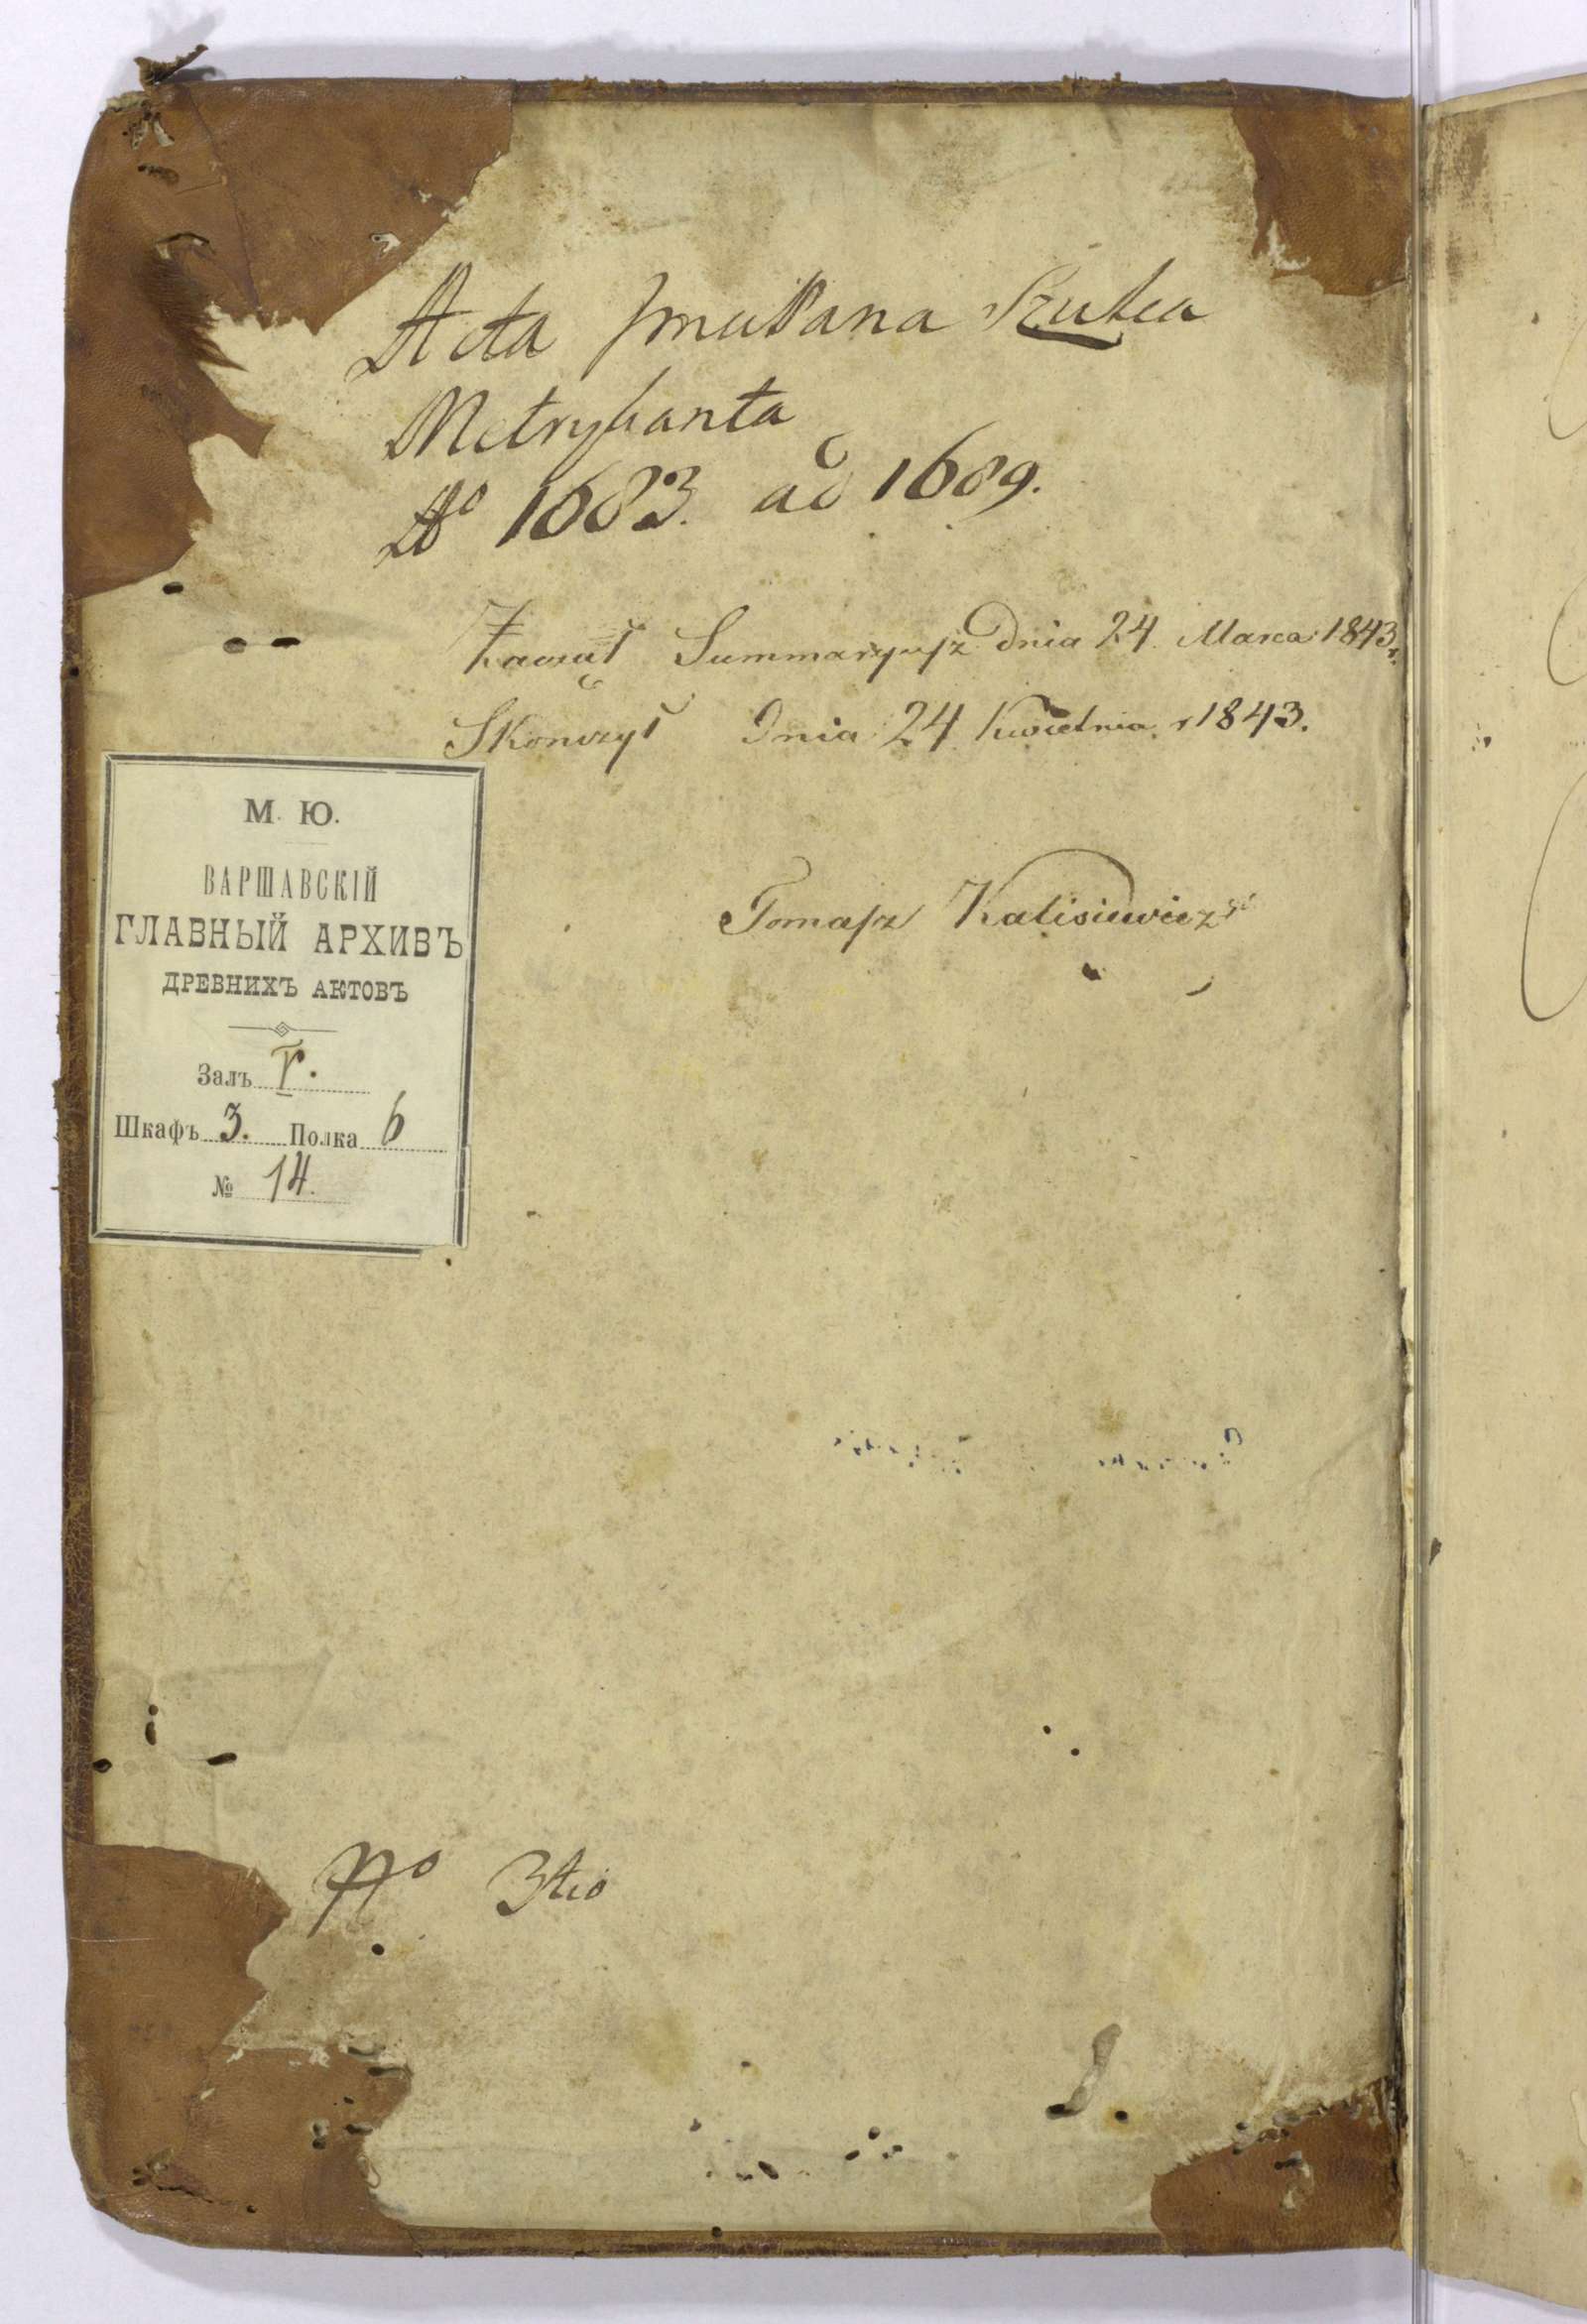 Acta JmciPana Szulca
Metrykanta
Ao 1683. ad 1689.
Zaczął Summaryusz Dnia 24. Marca 1843 r.
Skonczył Dnia 24 Kwietnia r 1843.
Tomasz Kalisiewicz
М. Ю.
ВАРШАВСКІЙ
ГЛАВНЫЙ АРХИВЪ
ДРЕВНИХЪ АКТОВЪ
Залъ I.
Шкафъ 3. Полка 6
№ 14.
No 3tio